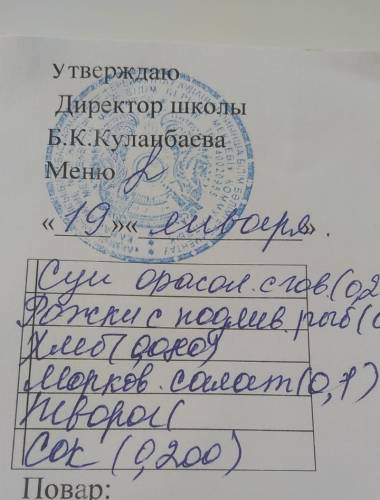 Утверждаю
Директор школы
Б.К.Куланбаева
Меню
« 19 »« января » .
Суп фасол. с гов. (0,2
Рожки с подлив. рыб (0
Хлеб
Морков. салат (0,1)
Творог (
Сок (0,200)
Повар: